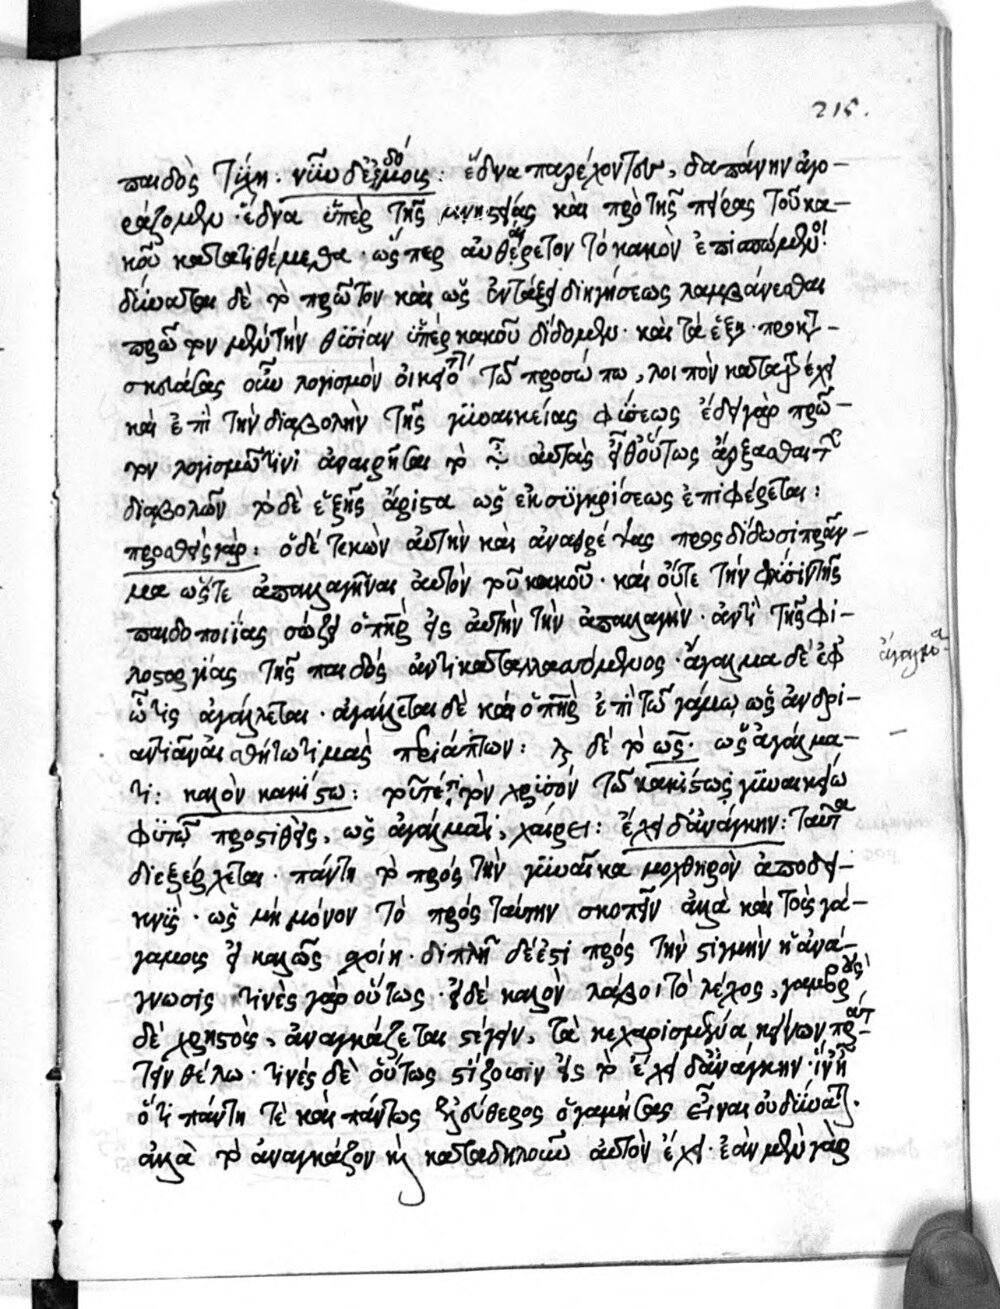 215.
παιδὸς τύχη · νῦν δ' ἐξ δόμοις : ἕδνα παρέχοντες, δαπάνην ἀγο-
ράζομεν · ἕδνα ὑπὲρ τῆς μνηστείας καὶ πρὸ τῆς πείρας τοῦ κα-
κοῦ κατατιθέμεθα · ὥσπερ αὐθαίρετον τὸ κακὸν ἐπισπώμενοι
δύναται δὲ τὸ πρῶτον καὶ ὡς ἐν τάξει διηγήσεως λαμβάνεσθαι
πρῶτον μὲν τὴν θυσίαν ὑπὲρ κακοῦ δίδομεν · καὶ τὰ ἑξῆς ·
σκευάσας οὖν λογισμὸν τῷ προσώπῳ, λοιπὸν
καὶ ἐπὶ τὴν διαβολὴν τῆς γυναικείας φύσεως ἔδει γὰρ πρῶ-
τον λογισμῷ τινι τὸ αὐτὰς εἶθ' οὕτως ἄρξασθαι τῶν
διαβολῶν τὸ δὲ ἑξῆς ἄριστα ὡς ἐκ συγκρίσεως ἐπιφέρεται :
προσθεὶς γὰρ : ὁ δὲ τεκὼν αὐτὴν καὶ ἀναθρέψας προσδίδωσι πρᾶγ-
μα ὥστε ἀπαλλαγῆναι αὐτὸν τοῦ κακοῦ · καὶ οὔτε τὴν φύσιν τῆς
παιδοποιΐας σώζει ὁ πατὴρ εἰς αὐτὴν τὴν ἀπαλλαγὴν · ἀντὶ τῆς φι-
λοστοργίας τῆς παιδὸς ἀντικαταλλασσόμενος · ἄγαλμα δὲ ἐφ'
ἄγαλμα
ᾧ τις ἀγάλλεται · ἀγάλλεται δὲ καὶ ὁ πατὴρ ἐπὶ τῷ γάμῳ ὡς ἀνδρι-
άντι ἀναισθήτῳ τιμὰς περιάπτων : δὲ τὸ ὡς · ὡς ἀγάλμα-
τι : καλὸν κακίστῳ : τὸν χρυσὸν τῷ κακίστῳ γυναικείῳ
φυτῷ προστιθεὶς, ὡς ἀγάλματι, χαίρει : ἔχει δ' ἀνάγκην : ταῦτα
διεξέρχεται · πάντη τὸ πρὸς τὴν γυναῖκα μοχθηρὸν ἀποδει-
κνὺς · ὡς μὴ μόνον τὸ πρὸς ταύτην σκοπεῖν ἀλλὰ καὶ τοῖς γά-
γαμοις εἰ καλῶς σχοίη · διπλῆ δέ ἐστι πρὸς τὴν στιγμὴν ἡ ἀνά-
γνωσις τινὲς γὰρ οὕτως · εἰ δὲ καλὸν λάβοι τὸ λέχος, γαμβροὺς
δὲ χρηστοὺς, ἀναγκάζεται στέγειν, τὰ κεχαρισμένα κείνων πρατ-
τειν θέλω · τινὲς δὲ οὕτως στίζουσιν εἰς τὸ ἔχει δ' ἀνάγκην ·
ὅτι πάντη τὲ καὶ πάντως ἐλεύθερος ὁ γαμήσας εἶναι οὐ δύναται.
ἀλλὰ τὸ ἀναγκάζον καὶ καταδηλοῦν αὐτὸν ἔχει · ἐὰν μὲν γὰρ